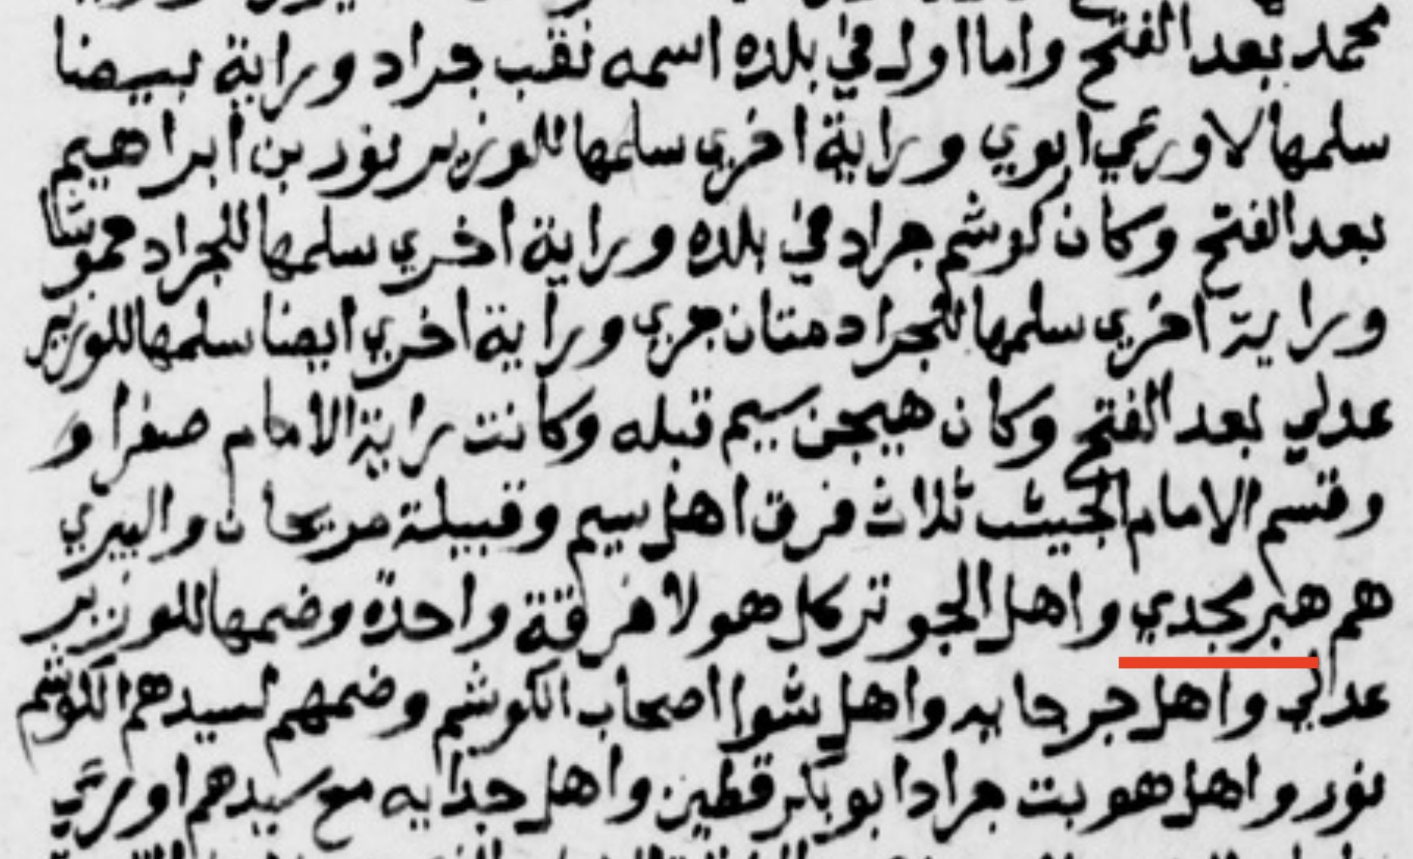 محمد بعد الفتح واما اول في بلده اسمه نقب جراد وراية بيضا
سلمها لاورعي ابوي وراية اخري سلمها للوزير نور بن ابراهيم
بعد الفتح وكان كوشم جراد في بلده وراية اخري سلمها للجراد حموشا
وراية اخري سلمها للجراد متان جري وراية اخري ايضا سلمها للوزير
عدلي بعد الفتح وكان هيجن سيم قبله وكانت راية الامام صفرا و
وقسم الامام الجيش ثلاث فرق اهل سيم وقبيلة مريحان واليبري
هم هبر مجدي واهل الجوتر كل هولا فرقة واحدة وضمها للوزير
عدلي واهل جرجايه واهل شوا اصحاب الكوشم وضمهم لسيدهم الكوشم
نور واهل هوبت جراد ابو بكر قطين واهل جدايه مع سيدهم اورعي